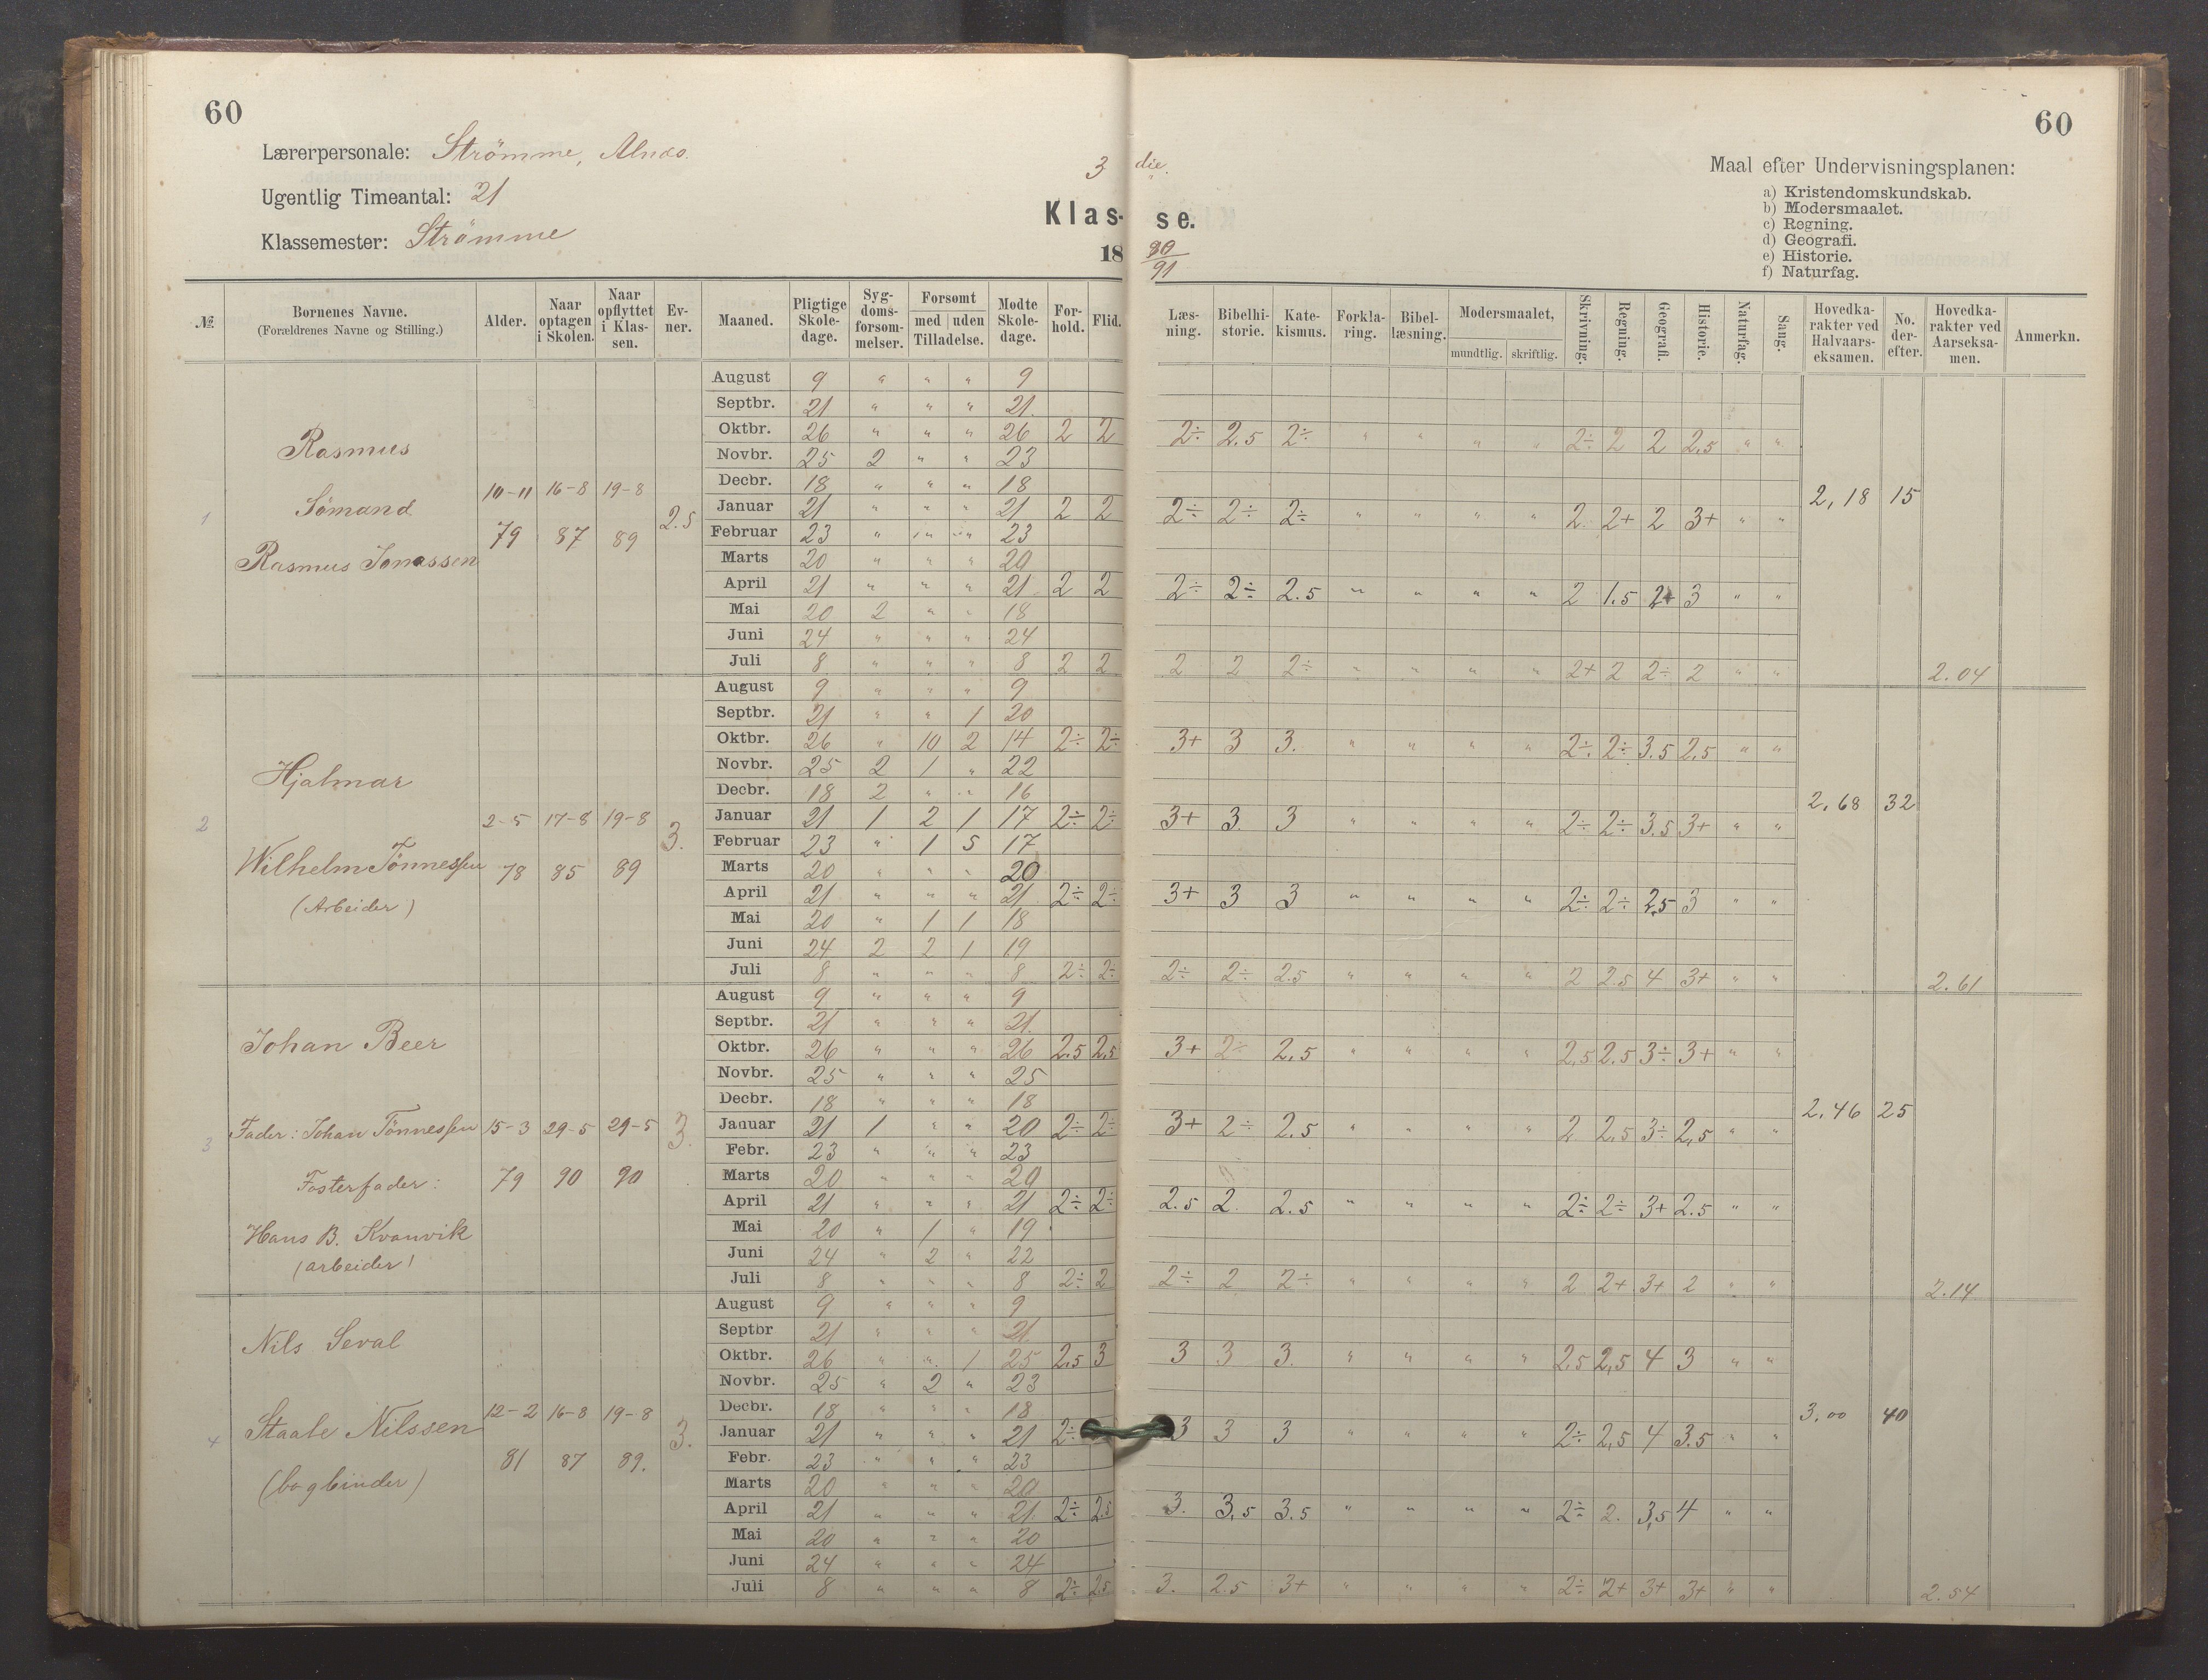 60
Lærerpersonale: Strömme,
Ugentlig Timeantal: 21
Klassemester: Strömme
3 die.
Klasse.
18 90/91
60
Maal efter Undervisningsplanen:
a) Kristendomskundskab.
b) Modersmaalet.
c) Regning.
d) Geografi.
e) Historie.
f) Naturfag.
№ | Børnenes Navne. (Forældrenes Navne og Stilling.) | Alder. | Naar optagen i Skolen. | Naar opflyttet i Klassen. | Evner. | Maaned. | Pligtige Skoledage. | Sygdomsforsømmelser. | Forsømt med | uden Tilladelse. | Mødte Skoledage. | Forhold. | Flid. | Læsning. | Bibelhistorie. | Katekismus. | Forklaring. | Bibellæsning. | Modersmaalet, mundtlig. | skriftlig. | Skrivning. | Regning. | Geografi. | Historie. | Naturfag. | Sang. | Hovedkarakter ved Halvaarseksamen. | No. derefter. | Hovedkarakter ved Aarseksamen. | Anmerkn.
1 Rasmus
Sömand
Rasmus Jonassen
10-11 79 | 16-8 87 | 19-8 89 | 2.5
August 9 " " " 9
Septbr. 21 " " " 21.
Oktbr. 26 " " " 26 2 2 2÷ 2.5 2÷ " " " " 2÷ 2 2 2,5 " "
Novbr. 25 2 " " 23
Decbr. 18 " " " 18
Januar 21 " " " 21 2 2 2÷ 2÷ 2÷ " " " " 2. 2+ 2 3+ " "
Februar 23 " " " 23
Marts 20 " " " 20
April 21 " " " 21 2 2 2÷ 2÷ 2.5 " " " " 2 1.5 2+ 3 " "
Mai 20 2 " " 18
Juni 24 " " " 24
Juli 8 " " " 8 2 2 2 2 2÷ " " " " 2+ 2 2÷ 2 " "
2,18 15 2.04
2 Hjalmar
Wilhelm Tönnessen
(Arbeider)
2-5 78 | 17-8 85 | 19-8 89 | 3.
August 9 " " " 9
Septbr. 21 " " 1 20
Oktbr. 26 " 10 2 14 2÷ 2÷ 3+ 3 3. " " " " 2÷ 2÷ 3.5 2,5 " "
Novbr. 25 2 1 " 22
Decbr. 18 2 " " 16
Januar 21 1 2 1 17 2÷ 2÷ 3+ 3. 3 " " " " 2÷ 2÷ 3.5 3+ " "
Februar 23 " 1 5 17
Marts 20 " " " 20
April 21 " " " 21 2÷ 2÷ 3+ 3 3 " " " " 2÷ 2÷ 2,5 3 " "
Mai 20 " 1 1 18
Juni 24 2 2 1 19
Juli 8 " " " 8 2÷ 2÷ 2÷ 2÷ 2.5 " " " " 2 2.5 4 3+ " "
2,68 32 2.61
3 Johan Beer
Fader: Johan Tönnessen
Fosterfader:
Hans B. Kvanvik
(arbeider)
15-3 79 | 29-5 90 | 29-5 90 | 3.
August 9 " " " 9
Septbr. 21 " " " 21.
Oktbr. 26 " " " 26 2.5 2,5 3+ 2÷ 2,5 " " " " 2,5 2.5 3÷ 3+ " "
Novbr. 25 " " " 25
Decbr. 18 " " " 18
Januar 21 1 " " 20 2÷ 2÷ 3+ 2÷ 2.5 " " " " 2 2,5 3÷ 2,5 " "
Febr. 23 " " " 23
Marts 20 " " " 20
April 21 " " " 21 2÷ 2÷ 2.5 2. 2.5 " " " " 2÷ 2÷ 3+ 2.5 " "
Mai 20 " 1 " 19
Juni 24 " 2 " 22
Juli 8 " " " 8 2÷ 2 2÷ 2 2÷ " " " " 2 2+ 3+ 2 " "
2,46 25 2.14
4 Nils Seval
Staale Nilssen
(bogbinder)
12-2 81 | 16-8 87 | 19-8 89. | 3.
August 9 " " " 9
Septbr 21 " " " 21.
Oktbr. 26 " " 1 25 2,5 3 3 3 3. " " " " 2,5 2,5 4 3 " "
Novbr. 25 " 2 " 23
Decbr. 18 " " " 18
Januar 21 " " " 21 2÷ 3 3 3 " " " " 2÷ 2,5 4 3.5 " "
Febr. 23 " " " 23
Marts 20 " " " 20
April 21 " " " 21. 2÷ 2.5 3. 3,5 3.5 " " " " 2÷ 2. 3,5 4 " "
Mai 20 " " " 20
Juni 24 " " " 24
Juli 8 " " " 8 2÷ 2.5 3. 2.5 3+ " " " " 2÷ 2+ 3+ 3+ " "
3,00 40 2.54